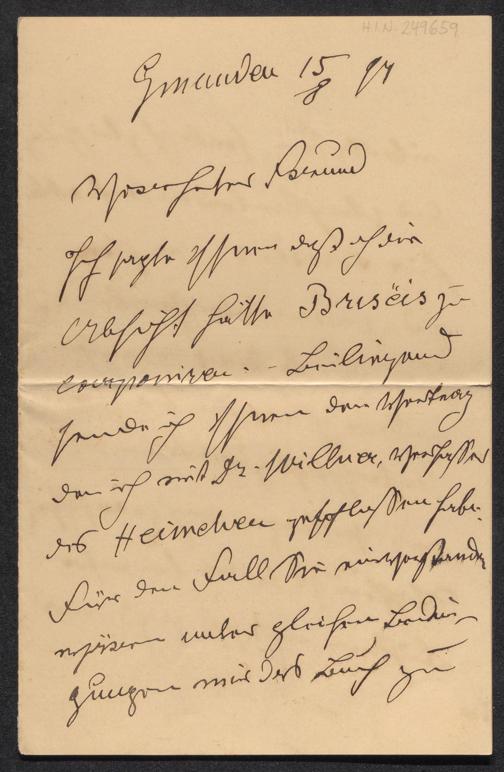 H.I.N. 249659
Gmunden 15/8 97
Verehrter Freund
Ich sagte Ihnen daß ich die
Absicht hätte Briseis zu
componiren. - Beiliegend
sende ich Ihnen den Vertrag
den ich mit Dr. Willner, Verfasser
des Heimchen geschlossen habe.
Für den Fall Sie einverstanden
wären unter gleichen Bedin-
gungen mir das Buch zu